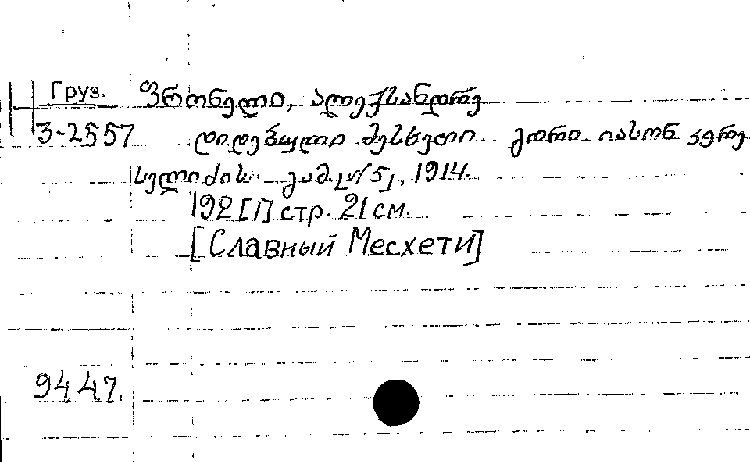 Груз. ფრონელი, ალექსანდრე
3-2557 დიდებული მესხეთი. გორი. იასონ კერე
სელიძის გამ. 1914.
192 [1] стр. 21 см.
[Славный Месхети]
9447.